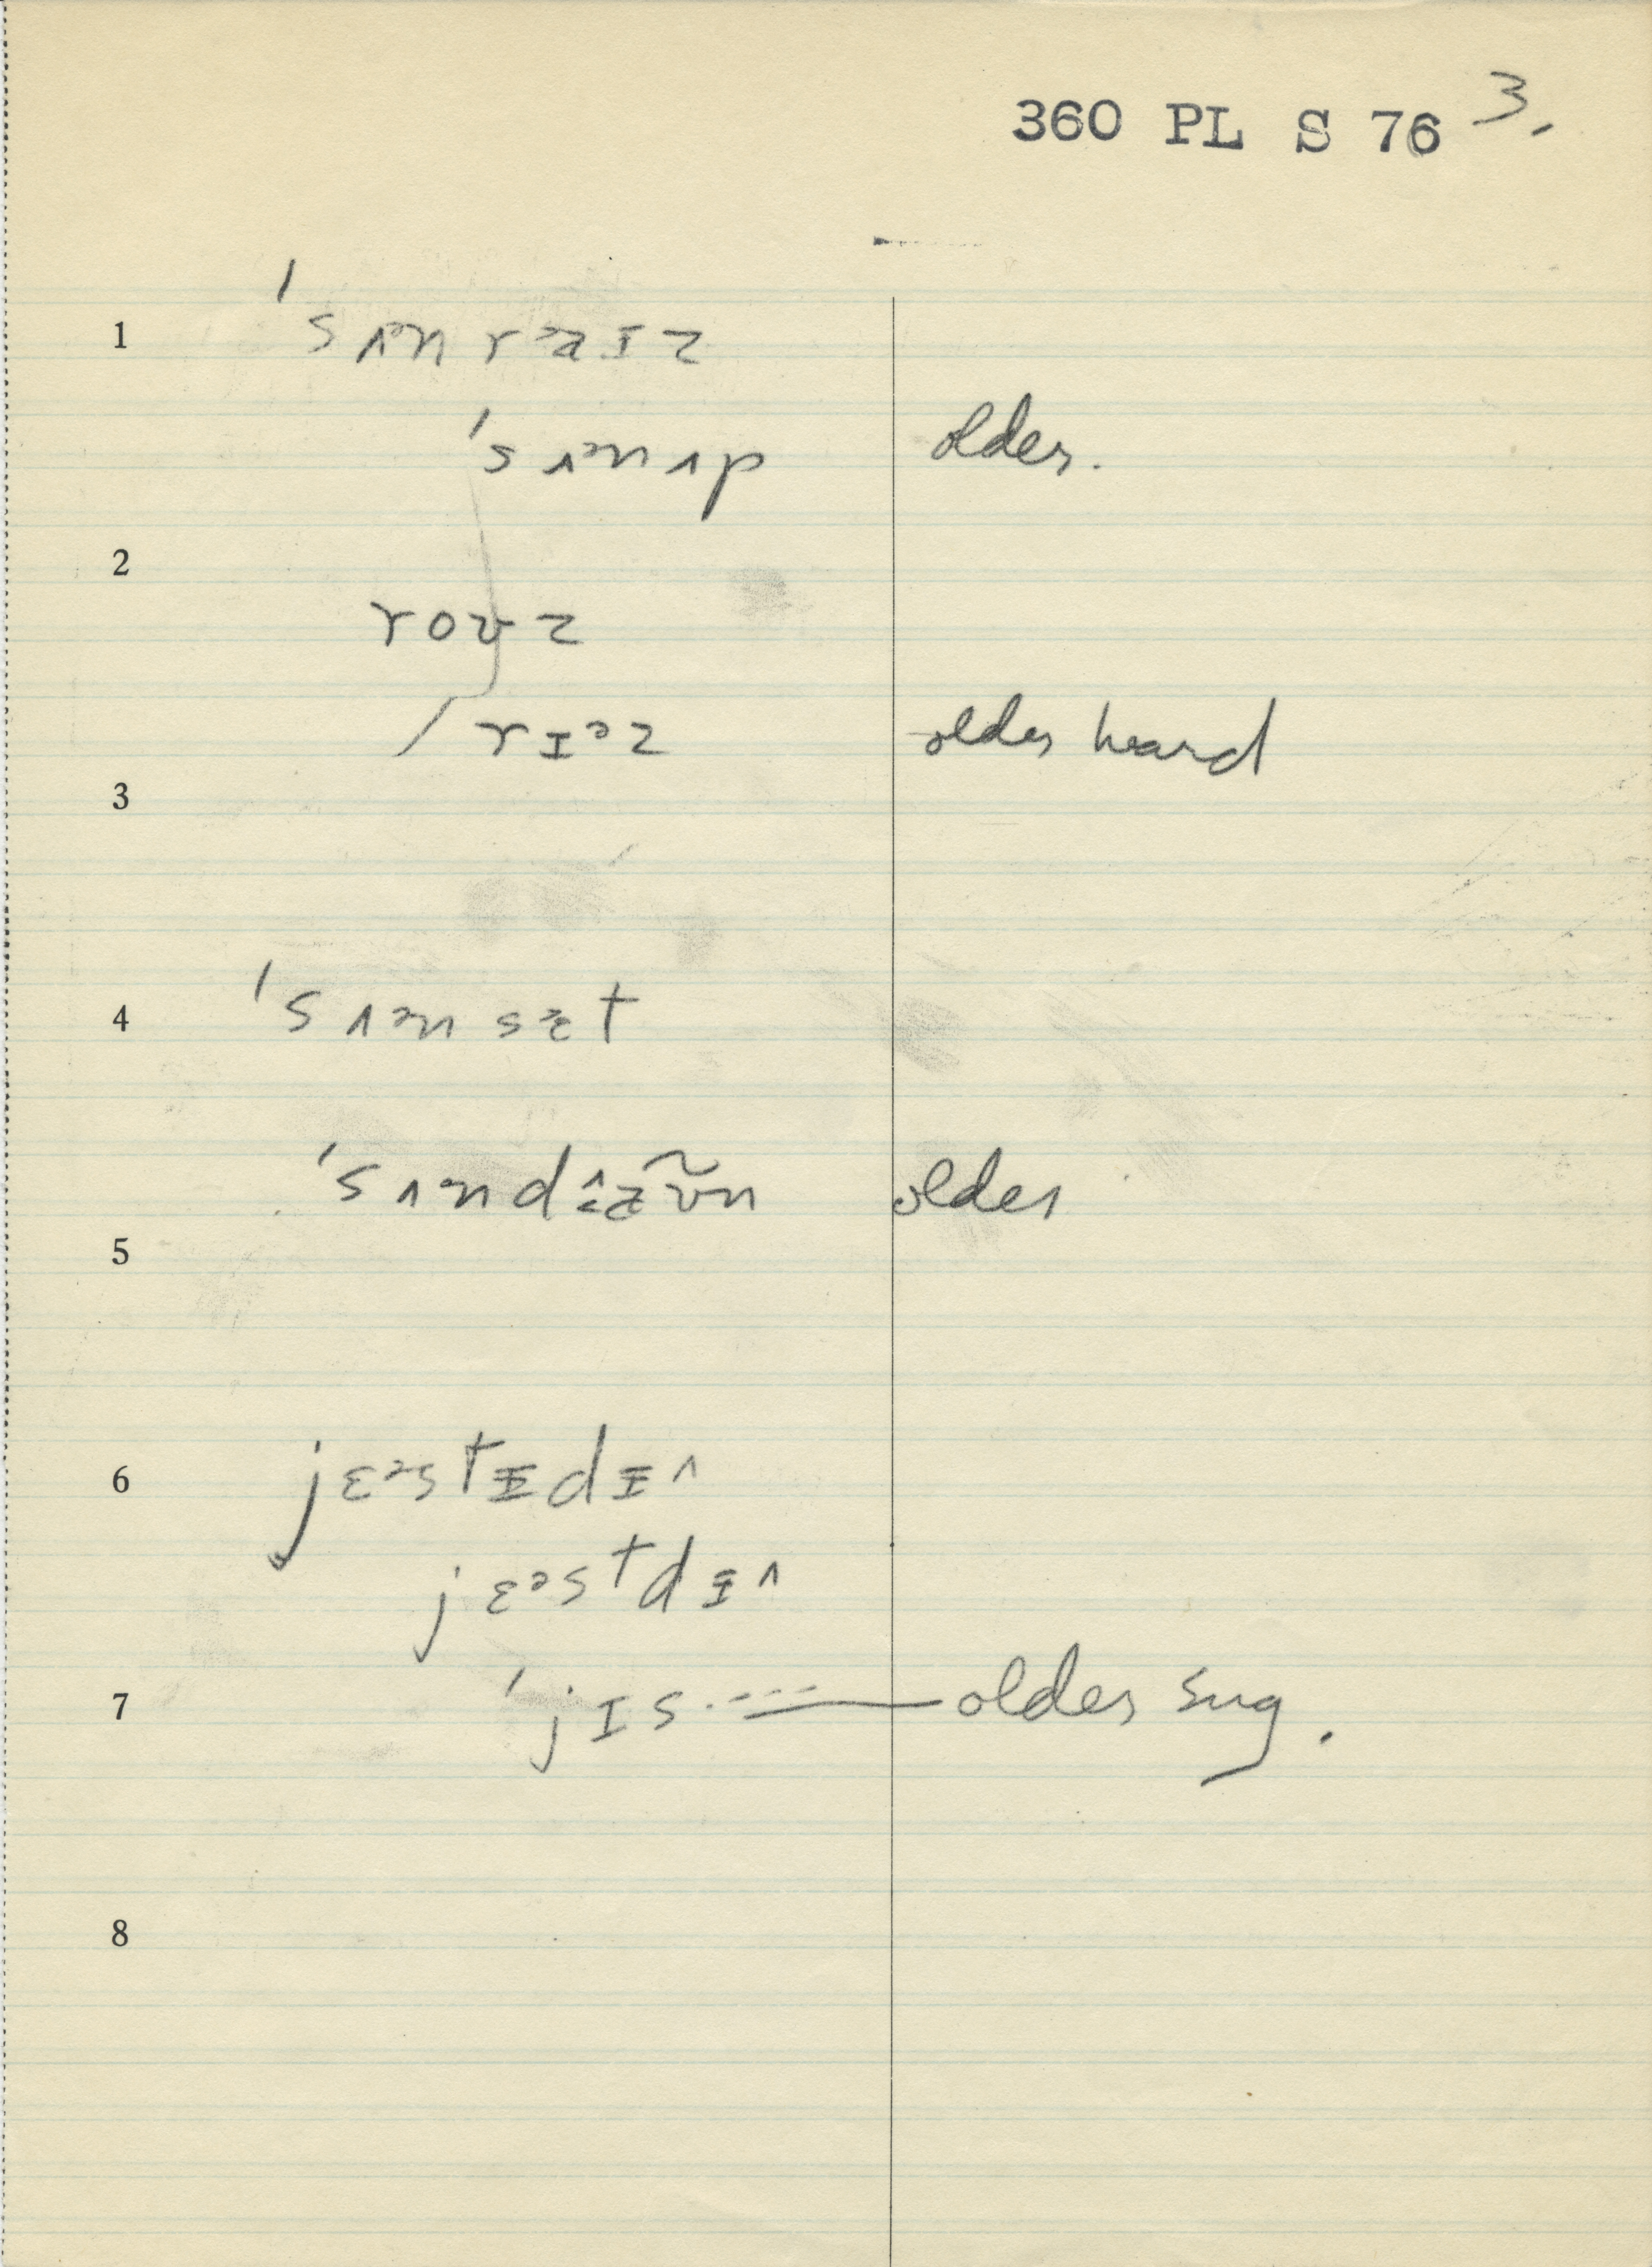 360 PL S 76 3.
1 ˈsʌᵊnraɪz
ˈsʌᵊnʌp older.
2
roʊz
rɪᵊz older heard
3
4 ˈsʌᵊnsɛᵊt
older
5
6 jɛᵊstɪdɪ^
jɛᵊstdɪ^
7 ˈjɪs --- older sug.
8